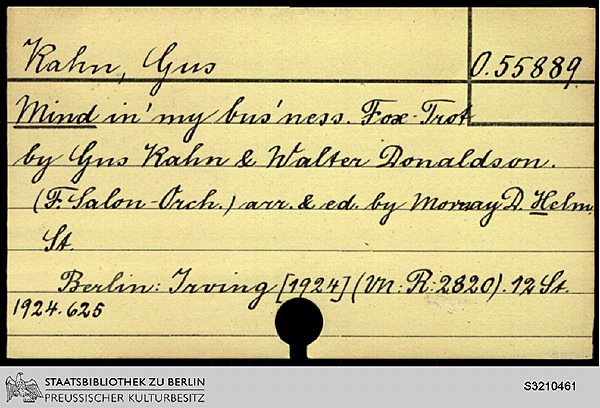 Kahn, Gus
O. 55889
Mind in' my bus'ness. Fox-Trot
by Gus Kahn & Walter Donaldson.
(F. Salon-Orch.) arr. & ed. by Morray D. Helm.
St.
Berlin: Irving [1924] (VN: R: 2820). 12 St.
1924.625
STAATSBIBLIOTHEK ZU BERLIN
PREUSSISCHER KULTURBESITZ
S3210461